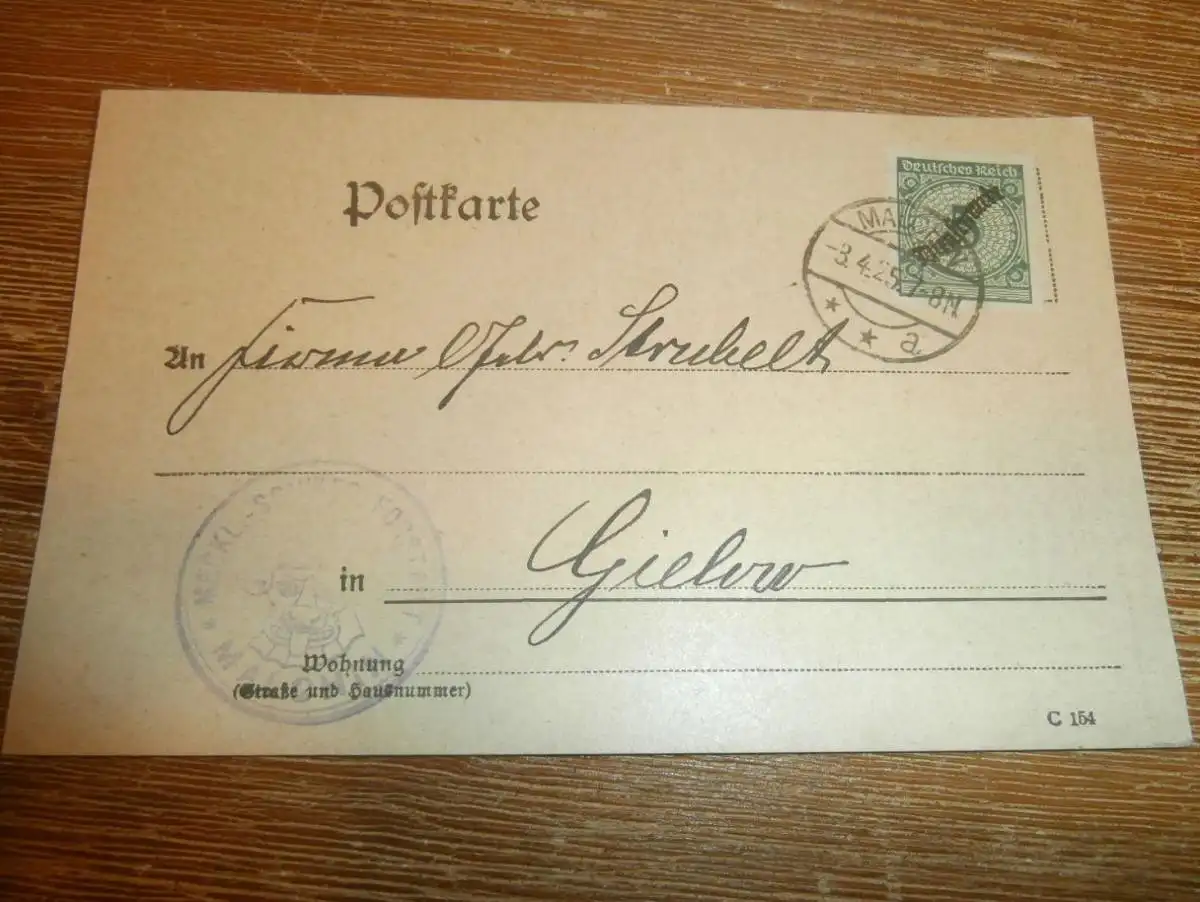 Postkarte
Deutsches Reich
5
Dienstmarke
MA
-3.4.25. 7-8N
* * a
An Firma Gebr. Strubelt
in Gielow
Wohnung
(Straße und Hausnummer)
C 154
* MECKL.-SCHWER. FORSTAMT *